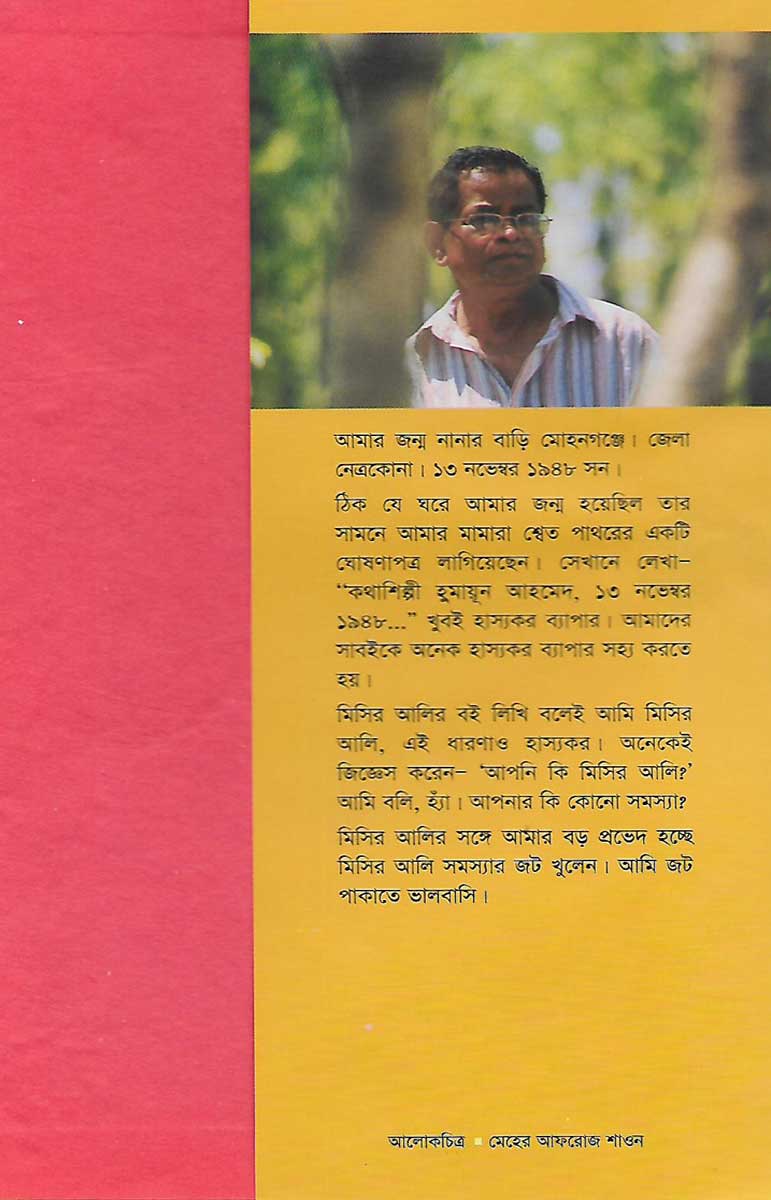 আমার জন্ম নানার বাড়ি মোহনগঞ্জে। জেলা
নেত্রকোনা। ১৩ নভেম্বর ১৯৪৮ সন।
ঠিক যে ঘরে আমার জন্ম হয়েছিল তার
সামনে আমার মামারা শ্বেত পাথরের একটি
ঘোষণাপত্র লাগিয়েছেন। সেখানে লেখা–
“কথাশিল্পী হুমায়ূন আহমেদ, ১৩ নভেম্বর
১৯৪৮...” খুবই হাস্যকর ব্যাপার। আমাদের
সাবইকে অনেক হাস্যকর ব্যাপার সহ্য করতে
হয়।
মিসির আলির বই লিখি বলেই আমি মিসির
আলি, এই ধারণাও হাস্যকর। অনেকেই
জিজ্ঞেস করেন– ‘আপনি কি মিসির আলি?’
আমি বলি, হ্যাঁ। আপনার কি কোনো সমস্যা?
মিসির আলির সঙ্গে আমার বড় প্রভেদ হচ্ছে
মিসির আলি সমস্যার জট খুলেন। আমি জট
পাকাতে ভালবাসি।
আলোকচিত্র ▪ মেহের আফরোজ শাওন